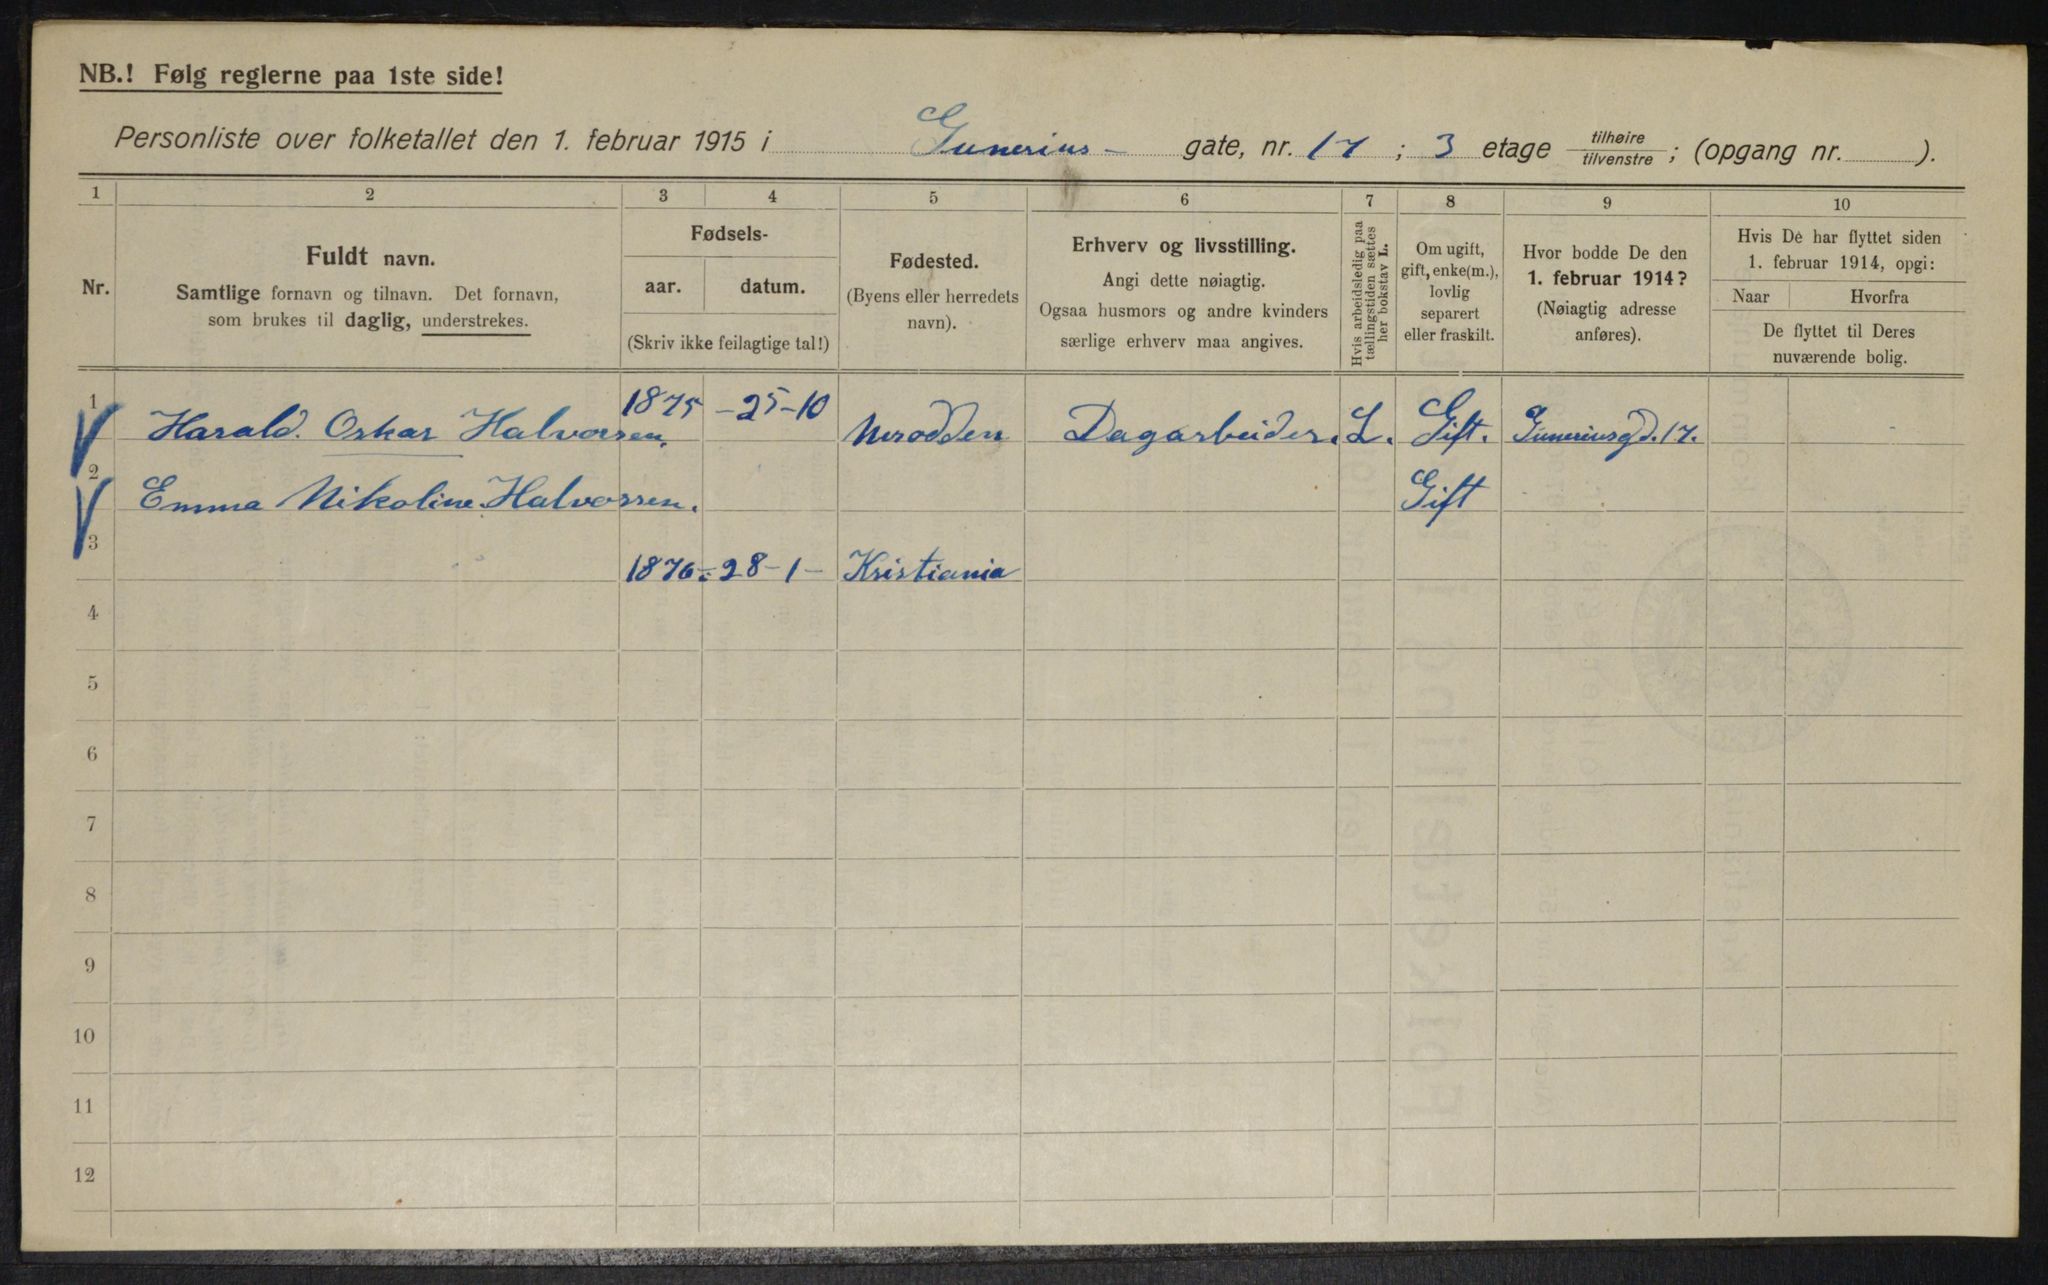 NB.! Følg reglerne paa 1ste side!
Personliste over folketallet den 1. februar 1915 i Gunerius- gate, nr. 17 ; 3 etage tilhøire/tilvenstre ; (opgang nr. ).
1 2 3 4 5 6 7 8 9 10
Nr.
Fuldt navn.
Samtlige fornavn og tilnavn. Det fornavn,
som brukes til daglig, understrekes.
Fødsels-
aar. datum.
(Skriv ikke feilagtige tal!)
Fødested.
(Byens eller herredets
navn).
Erhverv og livsstilling.
Angi dette nøiagtig.
Ogsaa husmors og andre kvinders
særlige erhverv maa angives.
Hvis arbeidsledig paa
tællingstiden sættes
her bokstav L.
Om ugift,
gift, enke(m.),
lovlig
separert
eller fraskilt.
Hvor bodde De den
1. februar 1914?
(Nøiagtig adresse
anføres).
Hvis De har flyttet siden
1. februar 1914, opgi:
Naar Hvorfra
De flyttet til Deres
nuværende bolig.
1 Harald. Oskar Halvorsen. 1875 -25-10 Dagarbeider. L. Gift. Guneriusgd. 17.
2 Emma Nikoline Halvorsen. Gift
3 1876 28-1- Kristiania
4
5
6
7
8
9
10
11
12